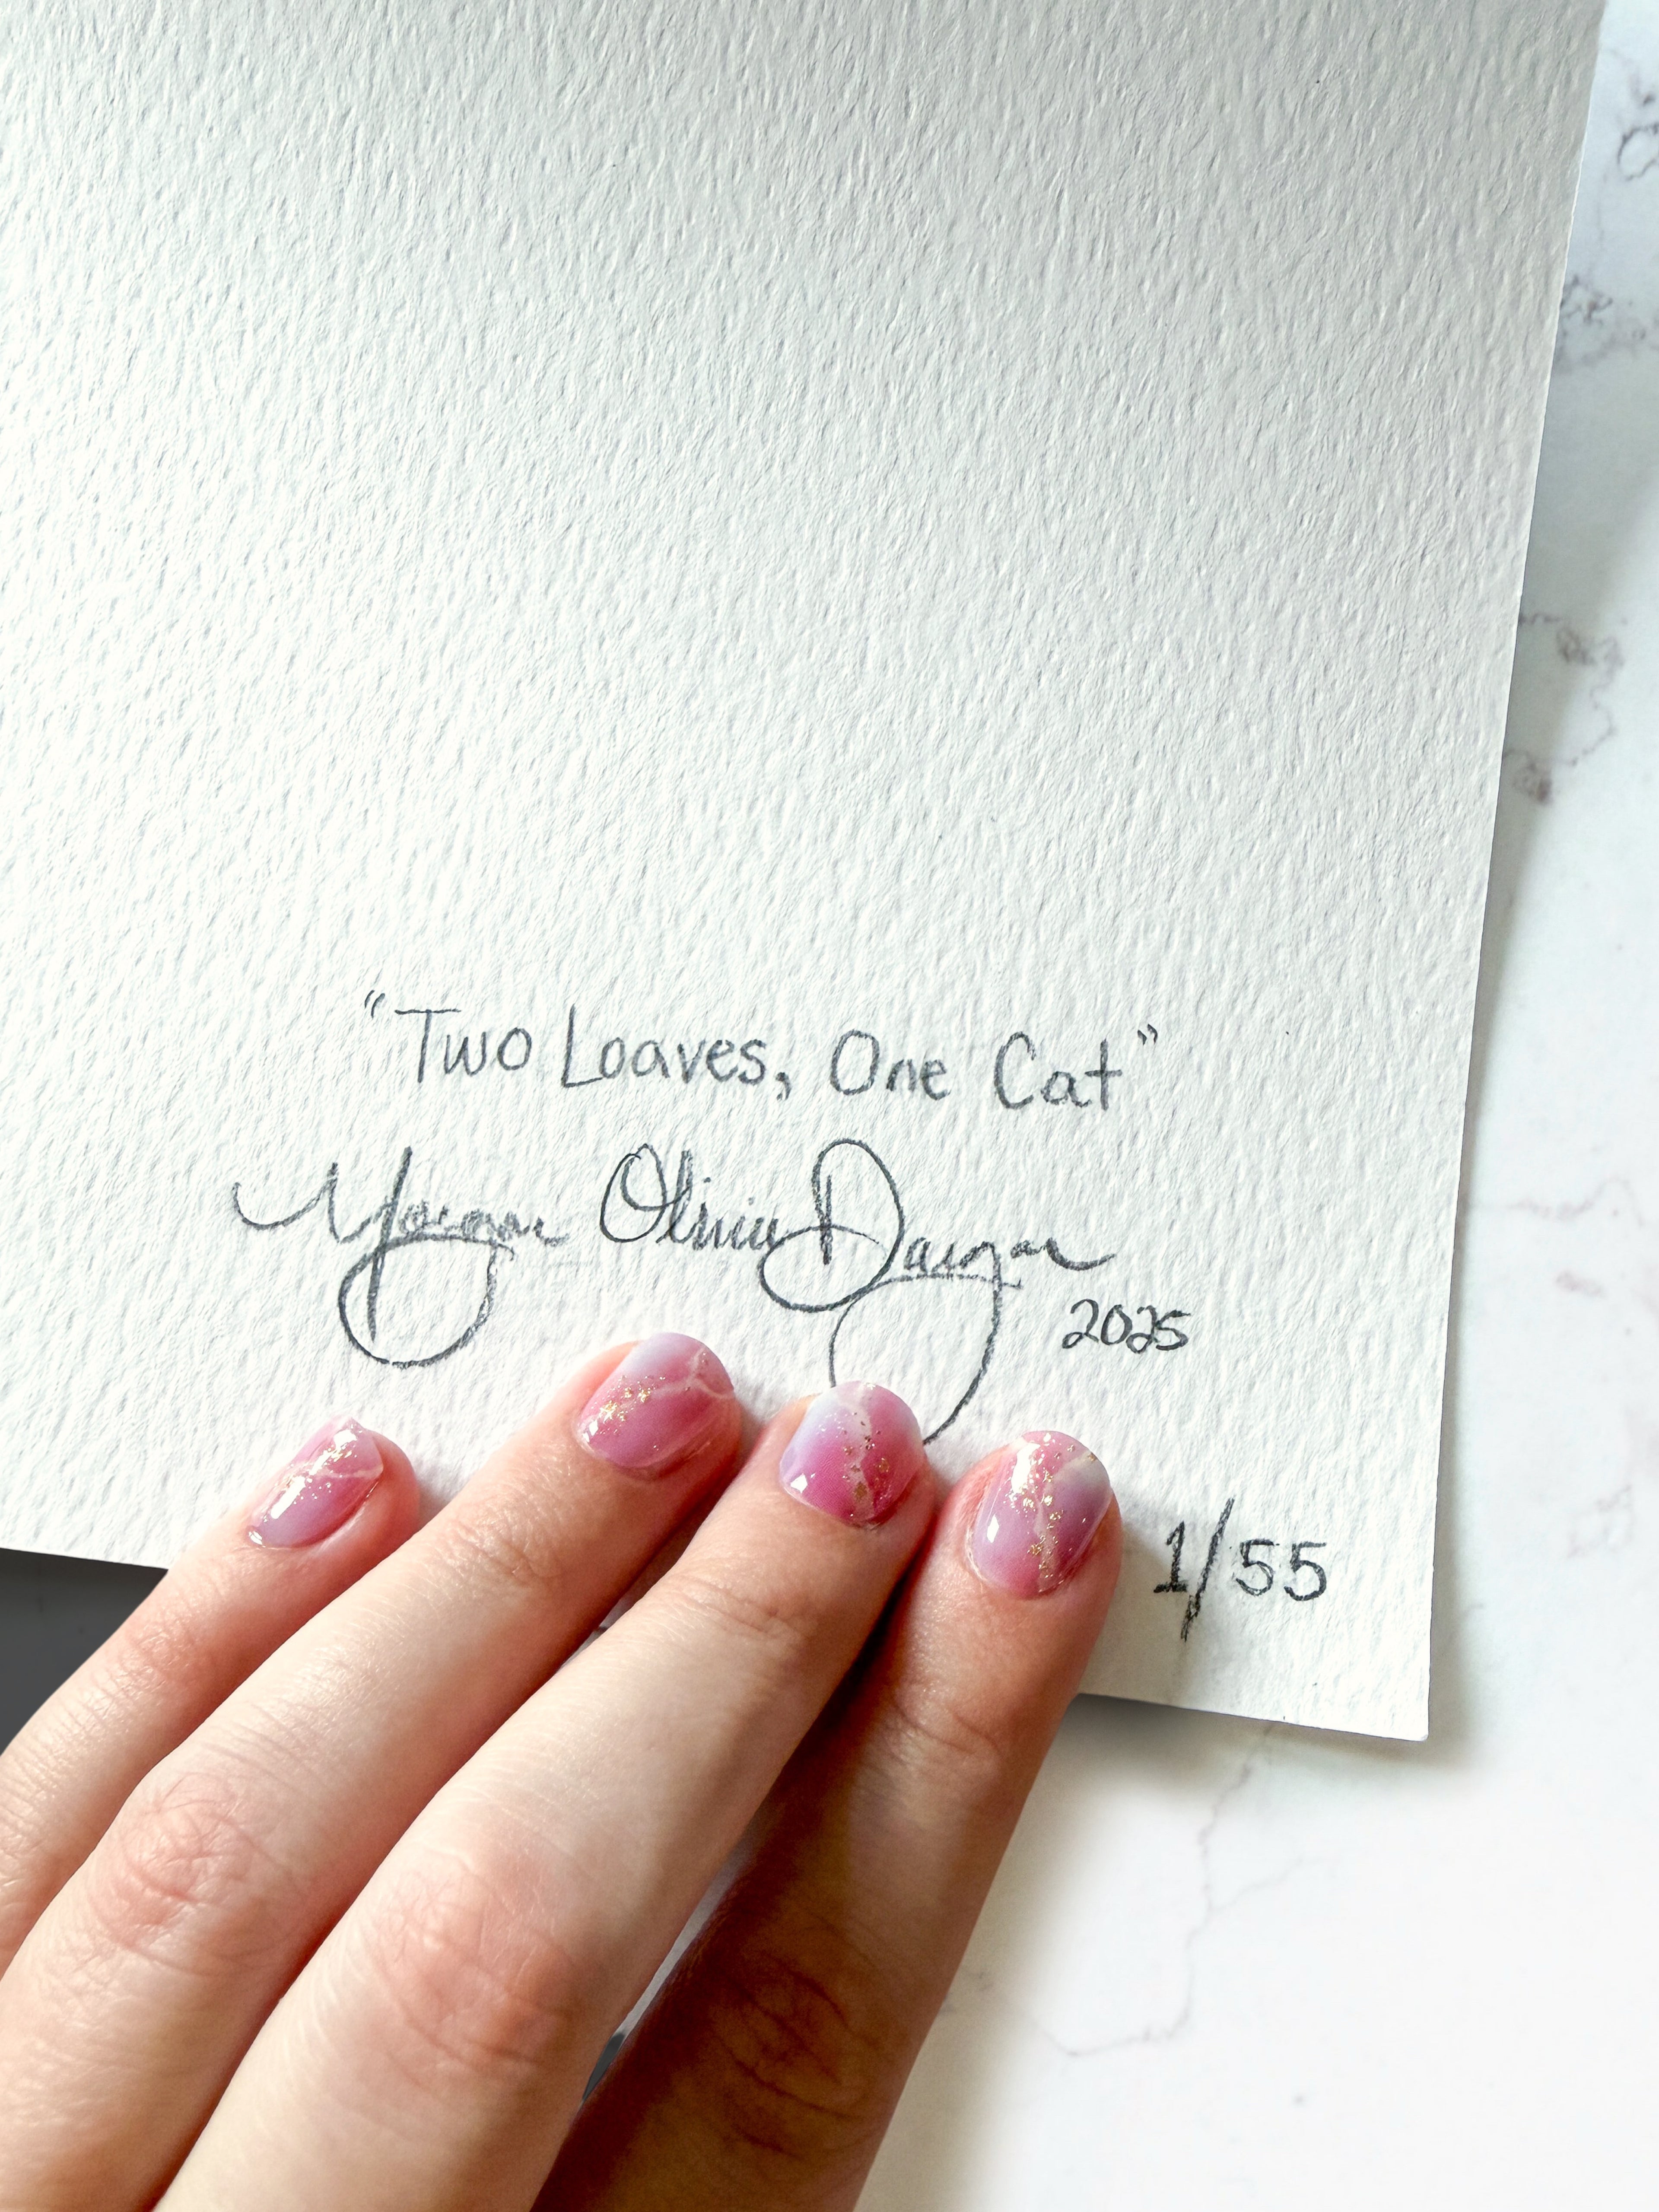 "Two Loaves, One Cat"
Morgan Olivia
2025
1/55